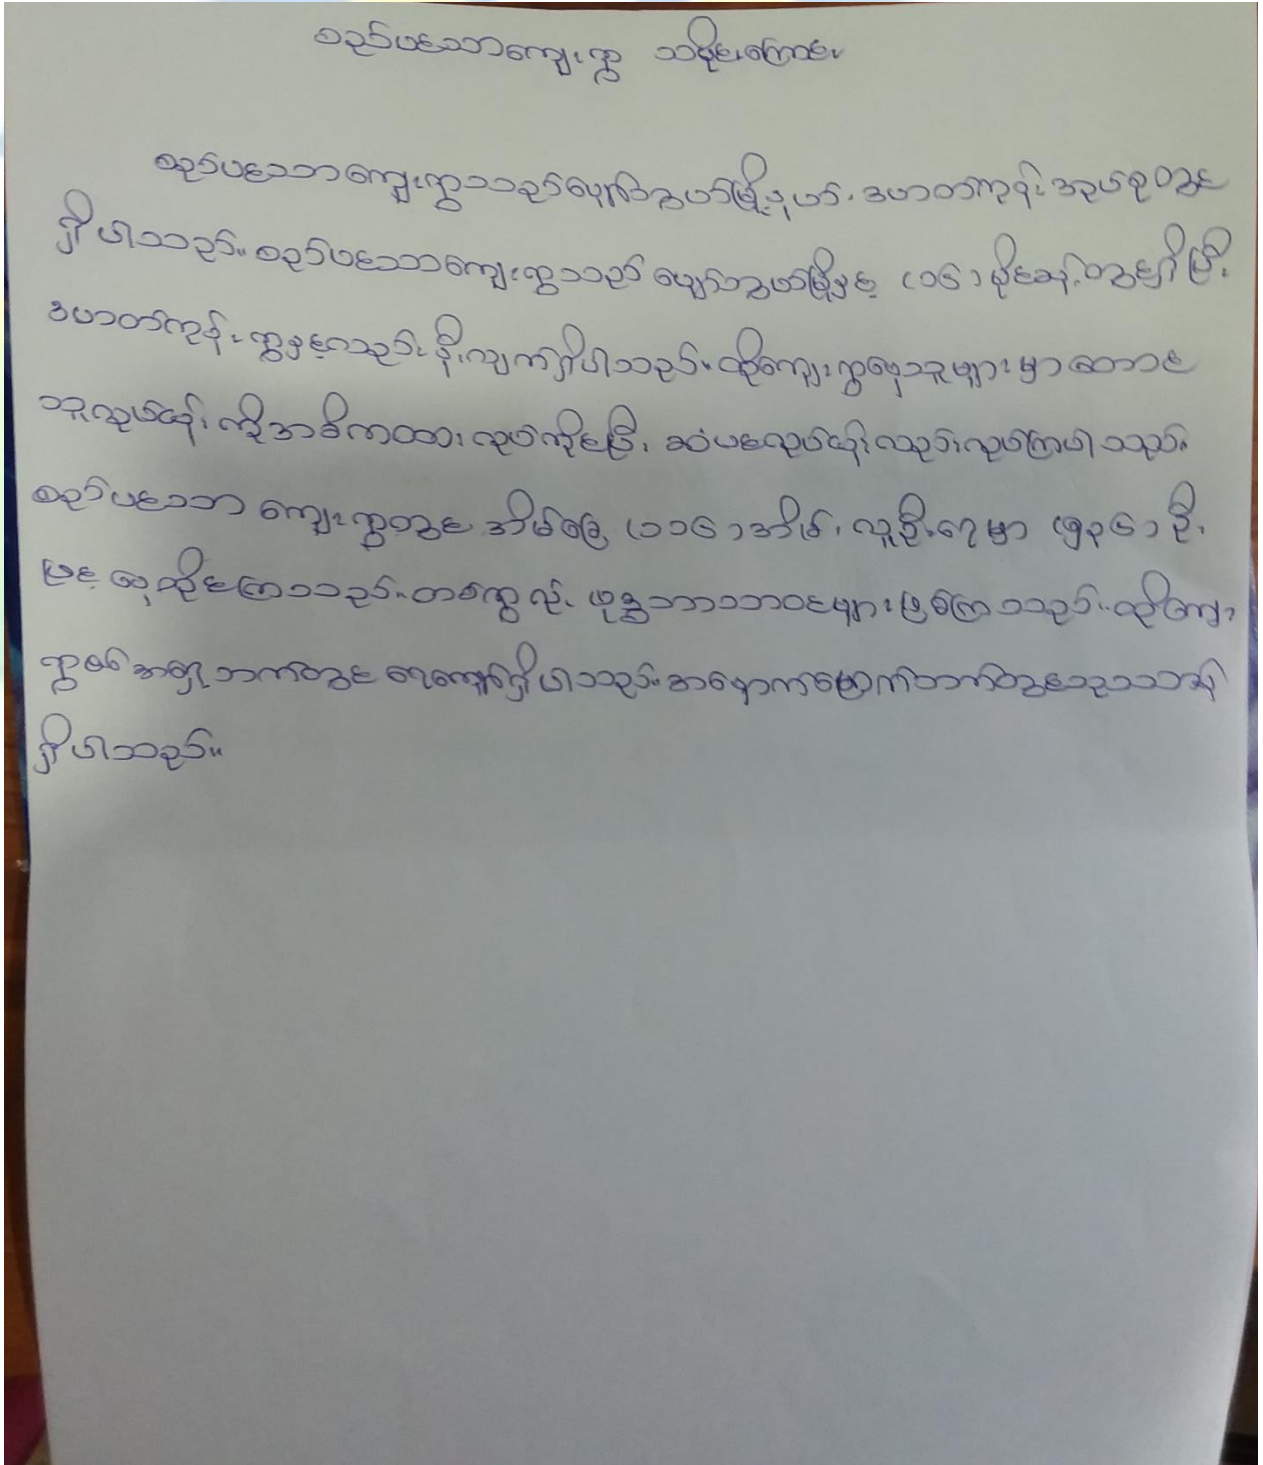 စည်ပင်သာကျေးရွာ သမိုင်းကြောင်း
စည်ပင်သာကျေးရွာသည်ပျော်ဘွယ်မြို့နယ်၊ ဒဟတ်ကုန်း အုပ်စုတွင်
ရှိပါသည်။ စည်ပင်သာကျေးရွာသည် ပျော်ဘွယ်မြို့နှင့် (၁၆) မိုင်ခန့်တွင်ရှိပြီး
ဒဟတ်ကုန်း ရွာနှင့်လည်း နီးလျက်ရှိပါသည်။ ထိုကျေးရွာနေသူများမှာ တောင်
သူလုပ်ငန်း ကိုအဓိကထား လုပ်ကိုင်ပြီး ဆံပင်လုပ်ငန်းလည်းလုပ်ကြပါသည်။
စည်ပင်သာ ကျေးရွာတွင် အိမ်ခြေ (၁၁၆) အိမ်၊ လူဦးရေမှာ (၅၃၆) ဦး
ဖြင့် နေထိုင်ကြသည်။ တစ်ရွာလုံး ဗုဒ္ဓဘာသာဝင်များဖြစ်ကြသည်။ ထိုကျေး
ရွာ၏ အရှေ့ဘက်တွင် ရေကျော်ရှိပါသည်။ အနောက်မြောက်ဘက်တွင်
ရှိပါသည်။